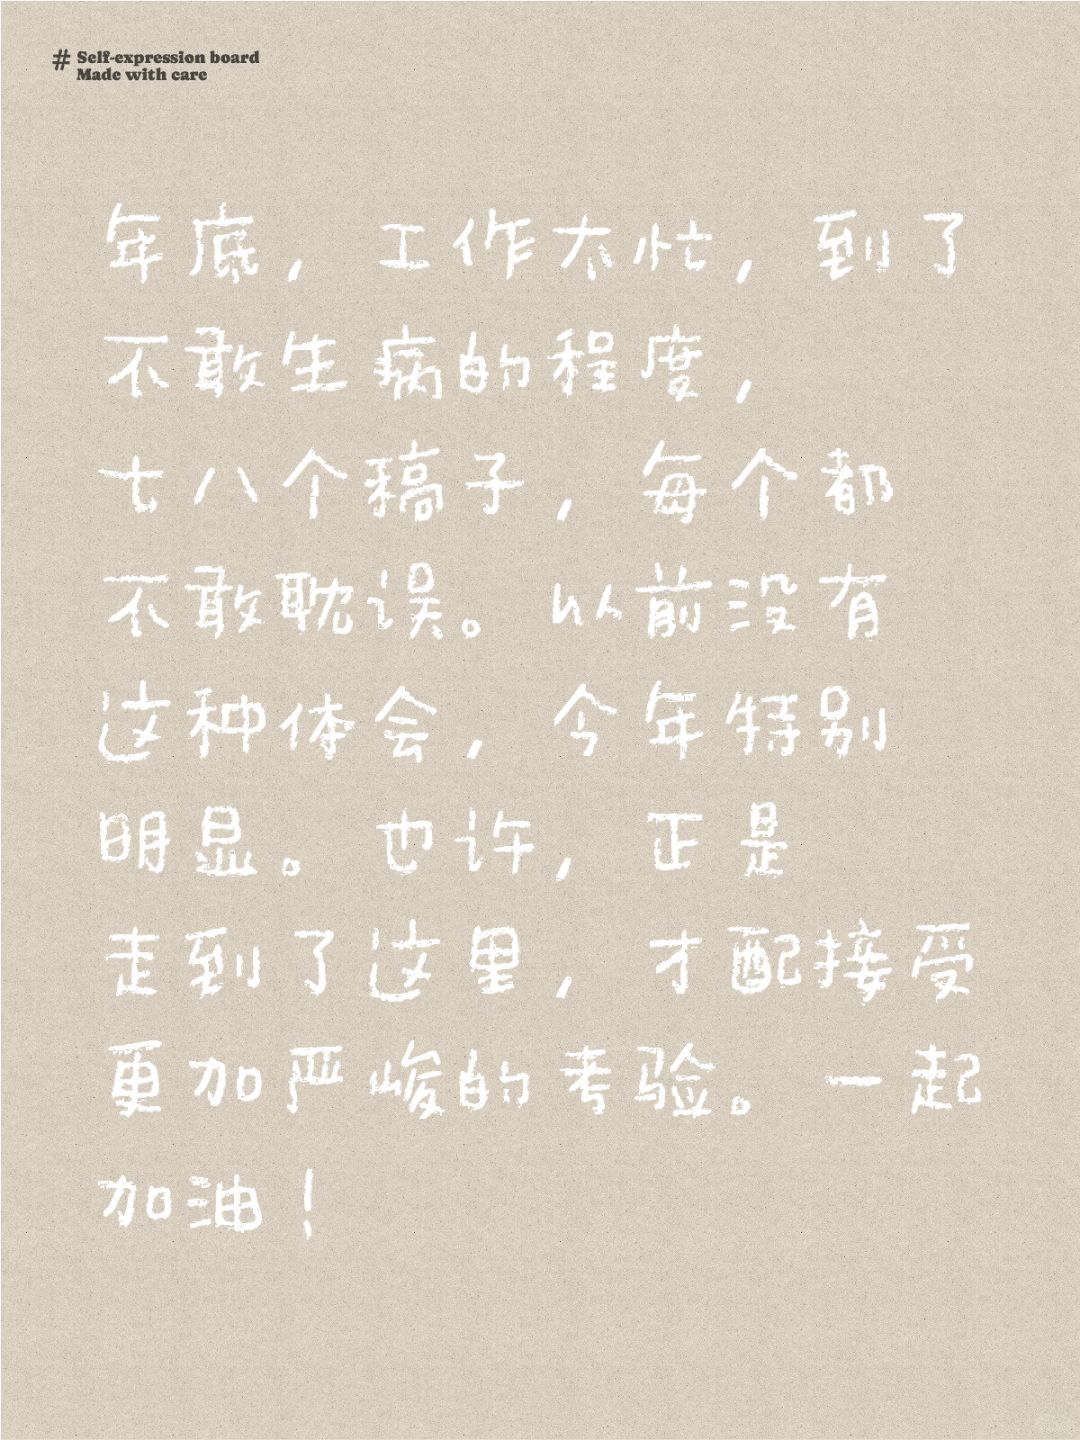 # Self-expression board
Made with care
年底，工作太忙，到了
不敢生病的程度，
七八个稿子，每个都
不敢耽误。以前没有
这种体会，今年特别
明显。也许，正是
走到了这里，才配接受
更加严峻的考验。一起
加油！